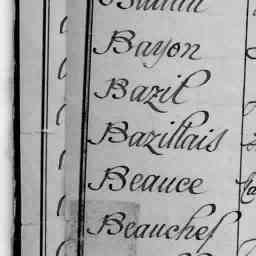 Bayon
Bazil
Bazillais
Beauce
Beauchef